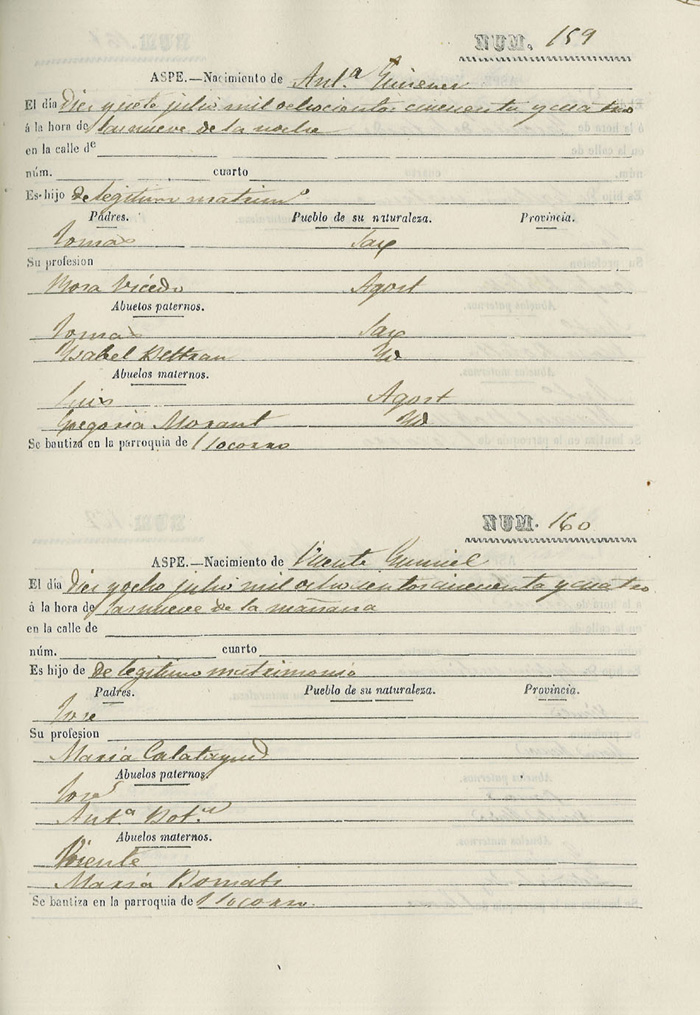 NUM. 159
ASPE.—Nacimiento de Ant.ª Gimenez
El dia Diez y siete julio mil ochocientos cincuenta y cuatro
á la hora de las nueve de la noche
en la calle de
núm. cuarto
Es hijo de legitimo matrim.º
Padres. Pueblo de su naturaleza. Provincia.
Tomas Sax
Su profesion
Rosa Vicedo Agost
Abuelos paternos.
Tomas Sax
Ysabel Beltran Yd
Abuelos maternos.
Luis Agost
Gregoria Morant Yd
Se bautiza en la parroquia de l Socorro
NUM. 160
ASPE.—Nacimiento de Vicente
El dia Diez y ocho julio mil ochocientos cincuenta y cuatro
á la hora de las nueve de la mañana
en la calle de
núm. cuarto
Es hijo de de legitimo matrimonio
Padres. Pueblo de su naturaleza. Provincia.
Jose
Su profesion
Maria Calatayud
Abuelos paternos.
José
Ant.ª
Abuelos maternos.
Vicente
Maria
Se bautiza en la parroquia de l Socorro.